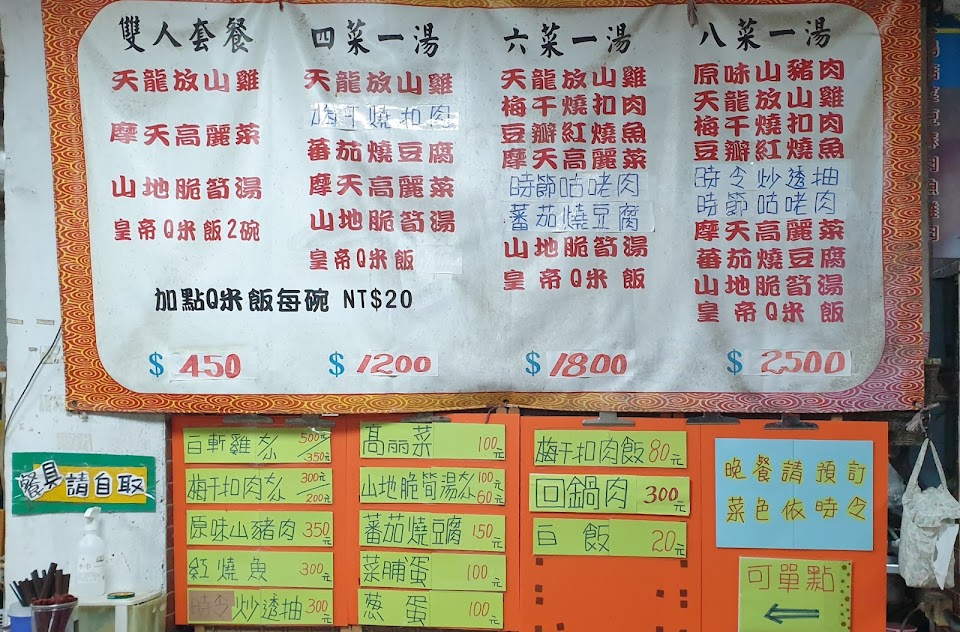 雙人套餐
天龍放山雞
摩天高麗菜
山地脆筍湯
皇帝Q米飯2碗
四菜一湯
天龍放山雞
梅干燒扣肉
蕃茄燒豆腐
摩天高麗菜
山地脆筍湯
皇帝Q米飯
加點Q米飯每碗 NT$20
六菜一湯
天龍放山雞
梅干燒扣肉
豆瓣紅燒魚
摩天高麗菜
時節咕咾肉
蕃茄燒豆腐
山地脆筍湯
皇帝Q米飯
八菜一湯
原味山豬肉
天龍放山雞
梅干燒扣肉
豆瓣紅燒魚
時令炒透抽
時節咕咾肉
摩天高麗菜
蕃茄燒豆腐
山地脆筍湯
皇帝Q米飯
$ 450
$ 1200
$ 1800
$ 2500
餐具請自取
白斬雞大/小 500元/350
梅干扣肉大/小 300元/200
原味山豬肉 350元
紅燒魚 300元
時令炒透抽 300元
高丽菜 100元
山地脆筍湯大/小 100元 60元
蕃茄燒豆腐 150元
菜脯蛋 100元
蔥蛋 100元
梅干扣肉飯 80元
回鍋肉 300元
白飯 20元
晚餐請預訂
菜色依時令
可單點